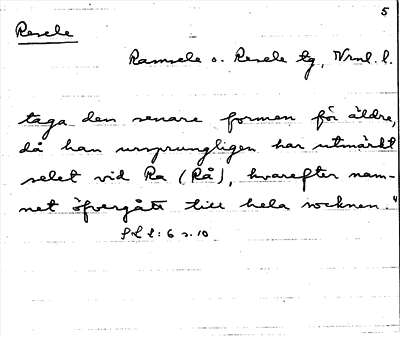 5
Resele
Ramsele o. Resele tg, Vrml. l.
taga den senare formen för äldre,
då han ursprungligen har utmärkt
selet vid Ra (Rå), hvarefter nam-
net öfvergått till hela socknen."
l: 6 s. 10